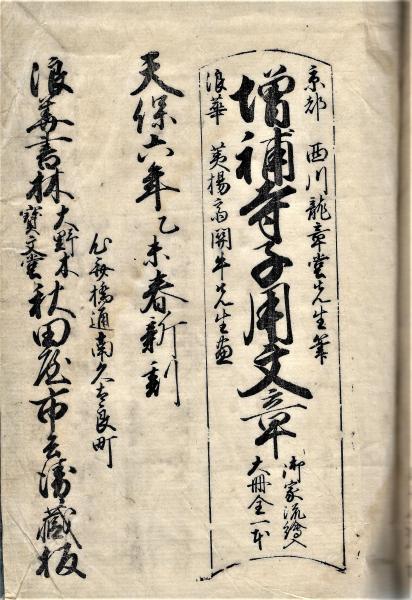 京都 西川龍章堂先生筆
浪華 䔥楊斎関牛先生画
増補寺子用文章
御家流繪入
大冊全一本
天保六年乙未春新刻
心斎橋通南久太良町
浪華書林 大野木 寶文堂 秋田屋市兵衛蔵板